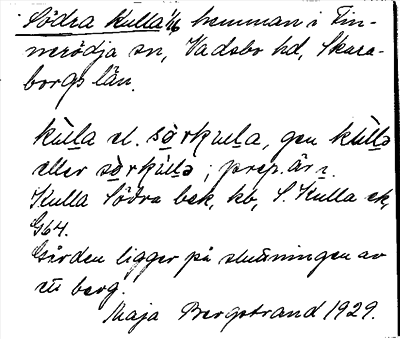 Södra Kulla 1/6 hemman i Fin-
nerödja sn, Vadsbo hd, Skara-
borgs län.
kùl̲l̲a el. sö̀rkul̲l̲a, gen kùl̲l̲ə
eller sö̀rkùl̲l̲ə; prep. är i.
Kulla Södra bek, kb, S. Kulla ek,
G64.
Gården ligger på sluttningen av
ett berg.
Maja Bergstrand 1929.